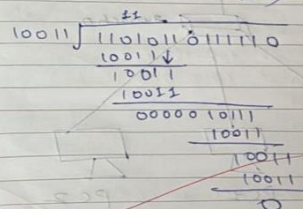 11
10011 11010110111110
10011
10011
10011
0000010111
10011
10011
10011
0